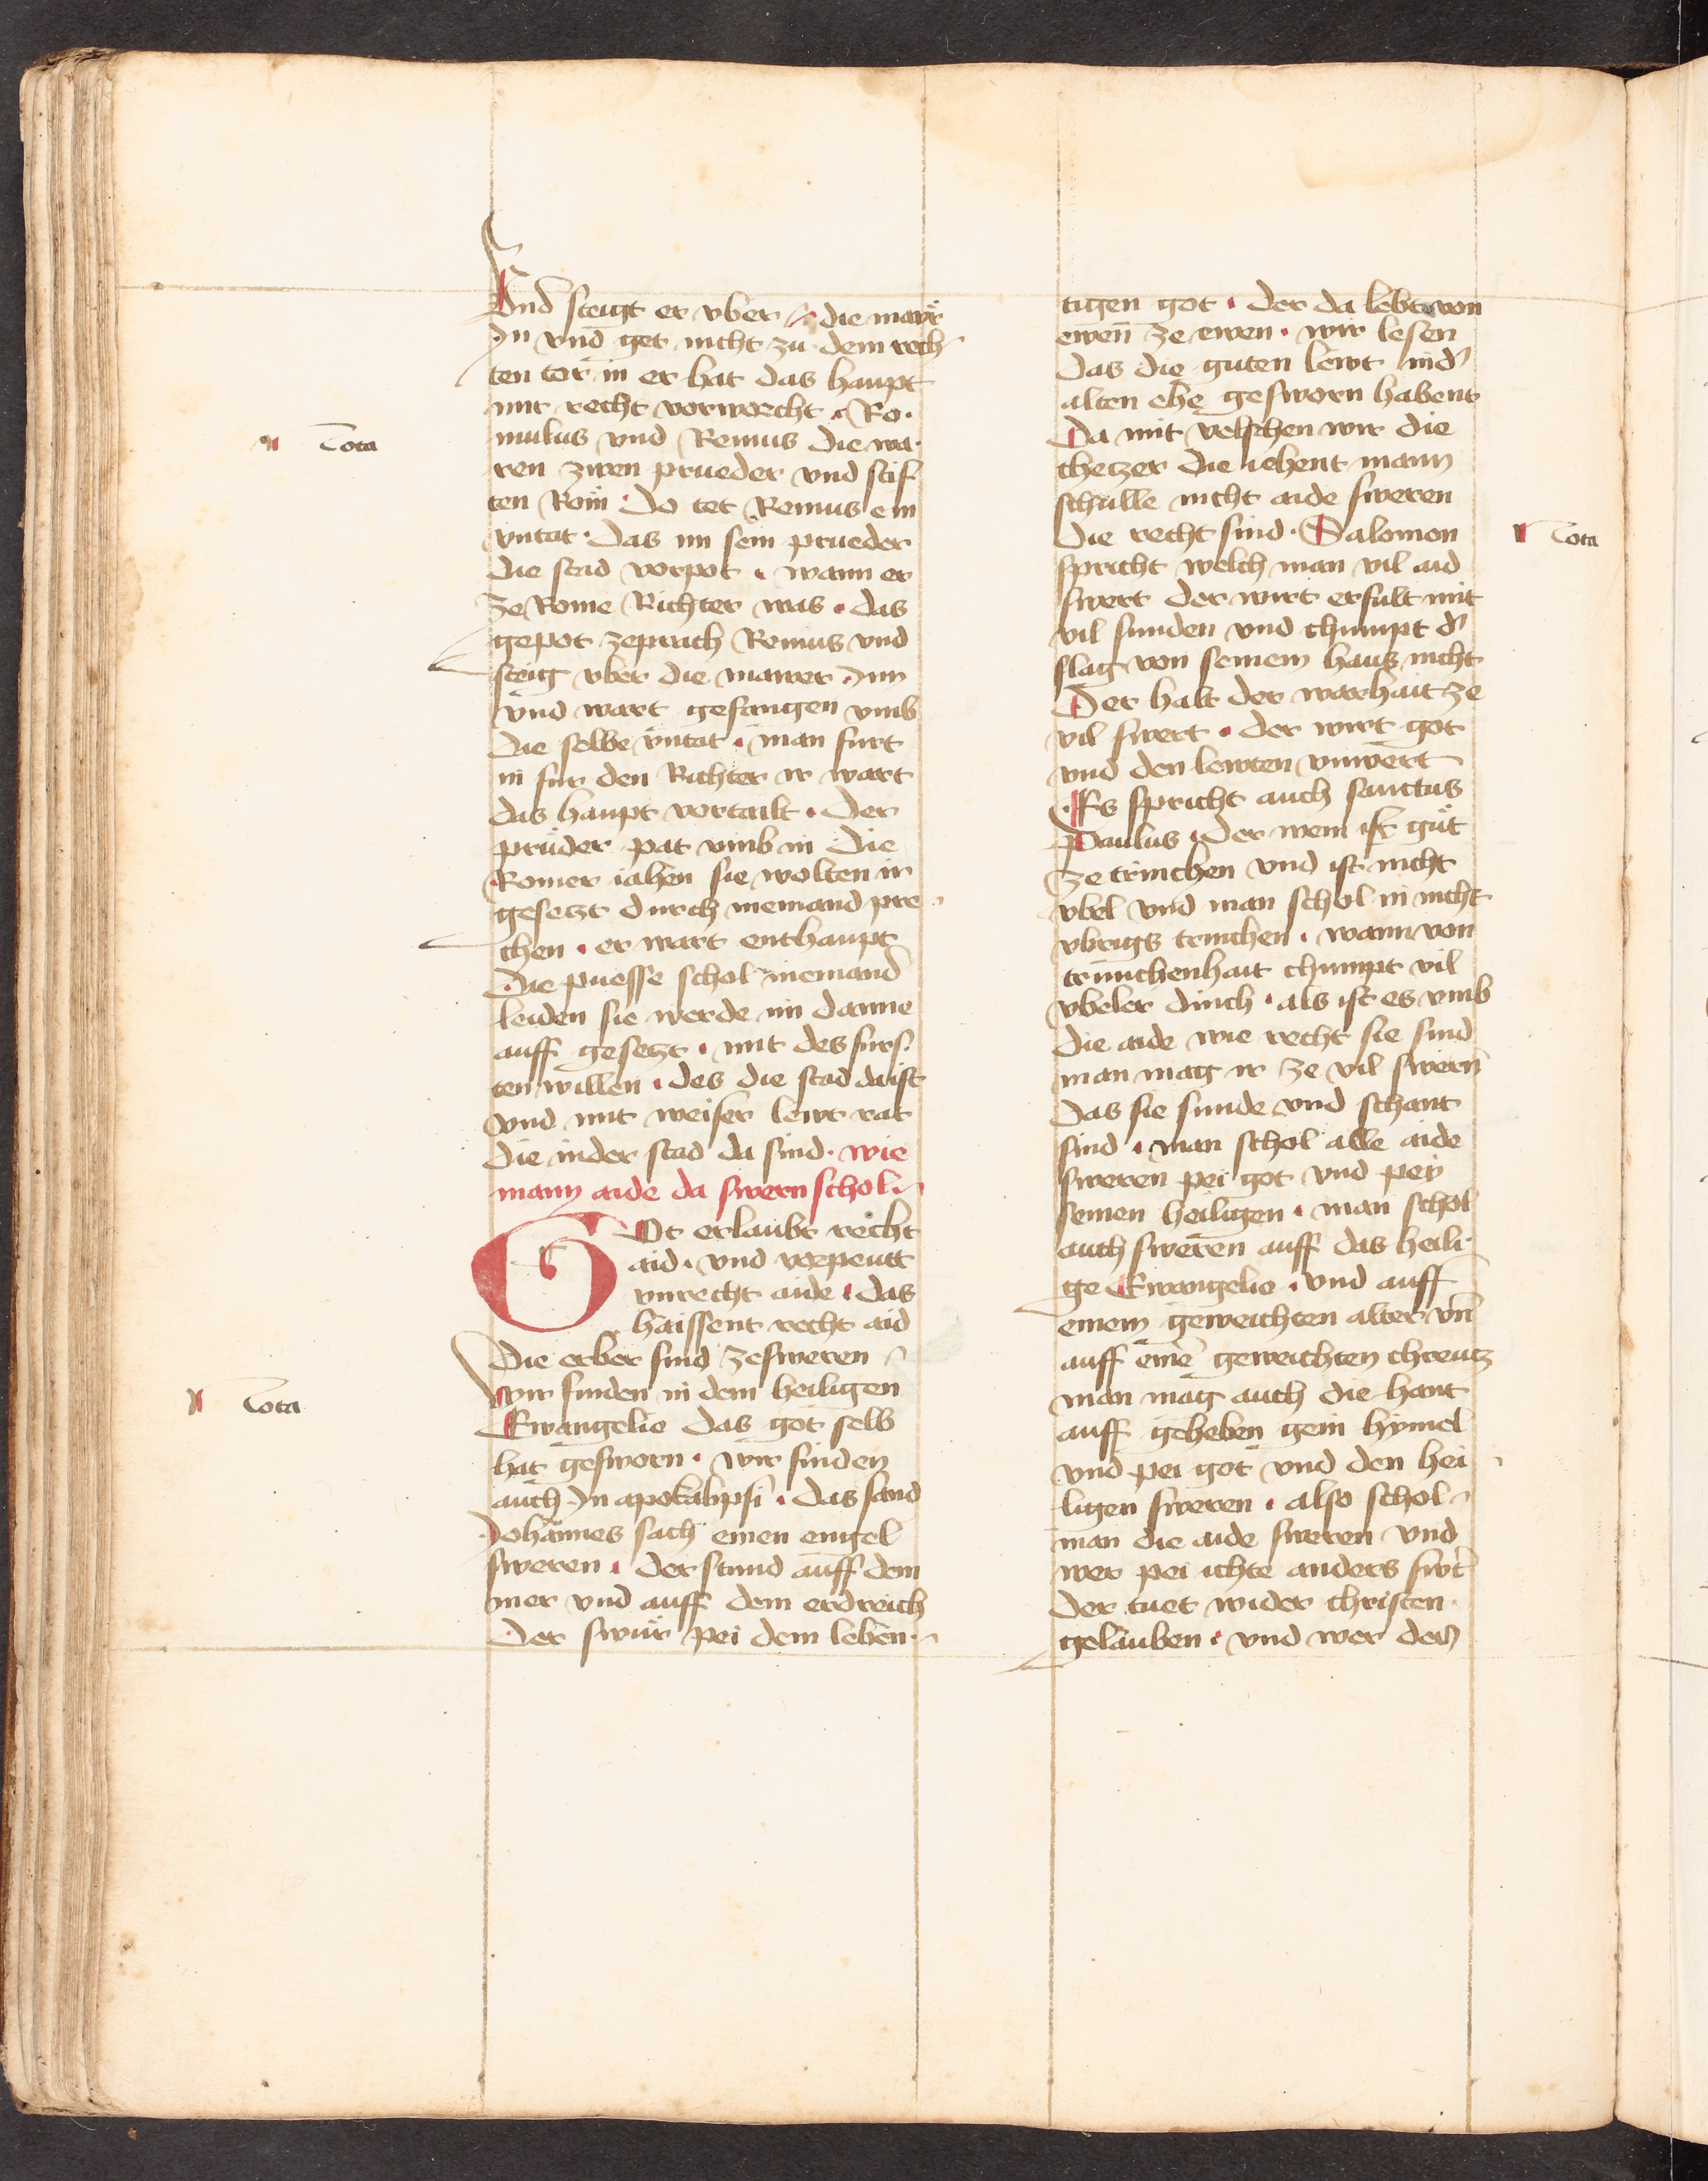 Vnd steigt er vber die mawr
In vnd get nicht zu dem rech
ten tor in er hat das haupt
mit recht vorworcht · Ro·
mulus vnd Remus die wa·
ren zwen prueder vnd stif
ten Rom · Do tet Remus ein
vntat · Das im sein prueder
die stad vorpot · wann er
ze Rome Richter was · das
gepot zeprach Remus vnd
steig vber die mawer Inn
vnd wart gefangen vmb
die selbe vntat · man furt
in fur den Richter ir wart
das haupt vortailt · Der
prüder pat vmb in Die
Romer iahen sie wolten ir
gesetzt durch niemand pre
chen · er wart enthaupt
Die puesse schol niemand
leiden sie werde im danne
auff gesetzt · mit des furs
ten willen · des die stad da ist
vnd mit weiser lewt rat
die in der stad da sind · wie
mann aide da swern schol
GOt erlaubt recht
aid · vnd vorpeutt
vnrecht aide · das
haissent recht aid
Die erber sind zesweren
wir finden in dem heiligen
Ewangelio das got selb
hat gesworn · wir finden
auch In apokalipsi · das sand
Johannes sach einen engel
sweren · der stund auff dem
mer vnd auff dem erdreich
Der swür pei dem leben
tigen got · der da lebt von
ewen ze ewen · wir lesen
Das die guten lewt in d'
alten ehe gesworn habent
Da mit velschen wir die
chetzer die iehent mann
schulle nicht aide sweren
die recht sind · Salomon
spricht welch man vil aid
swert der wirt erfult mit
vil sunden vnd chumpt d'
slag von seinem haus nicht
Der halt der warhait ze
vil swert · der wirt got
vnd den lewten vnwert
Es spricht auch sanctus
Paulus · der wein ist güt
ze trinchen vnd ist nicht
vbel vnd man schol in nicht
vbrigs trinchen · wann von
trunchenhait chumpt vil
vbeler dinch · als ist es vmb
die aide wie recht sie sind
man mag ir ze vil swern
Das sie sunde vnd schant
sind · man schol alle aide
sweren pei got vnd pey
seinen heiligen · man schol
auch sweren auff das heili
ge Ewangelio · vnd auff
einem geweichten alter vn̄
auff eine͂ geweichten chreutz
man mag auch die hant
auff geheben gein hymel
vnd pei got vnd den hei
ligen sweren · also schol
man die aide sweren vnd
wer pei ichte anders swt'
Der tuet wider christen
gelauben · vnd wer der
Nota
Nota
Nota